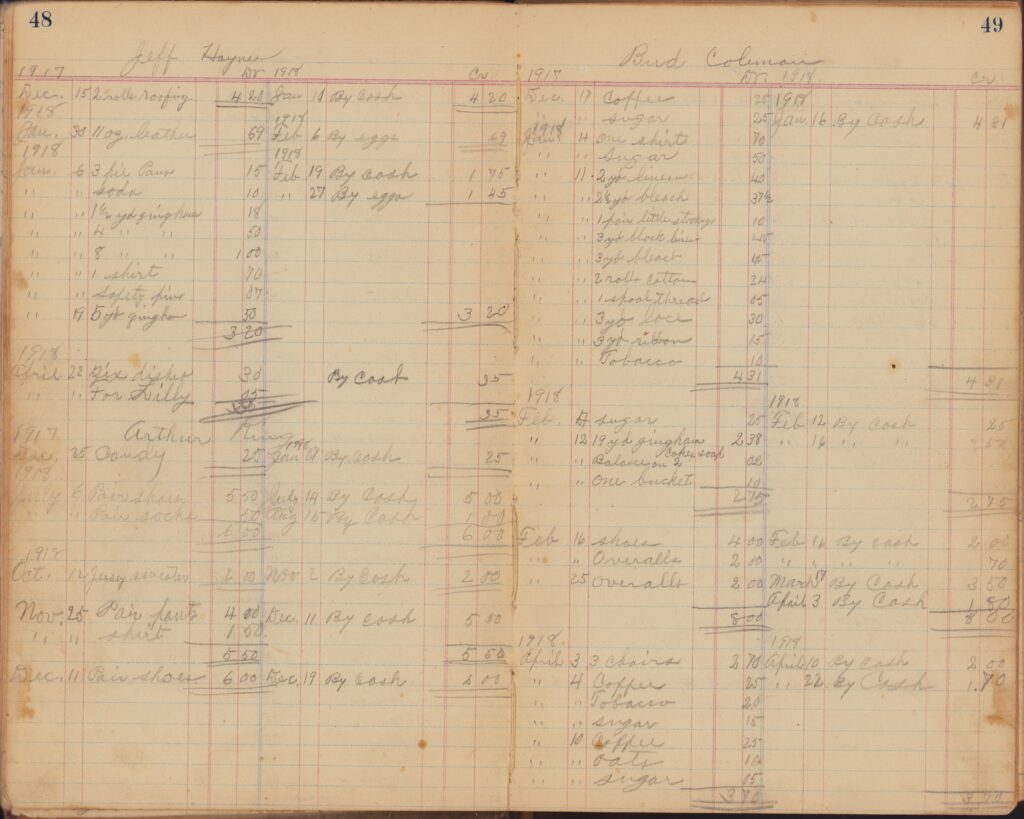 48
Jeff Haynes
1917 Dr 1918 Cr.
Dec. 15 2 rolls roofing 4 20 Jan 11 By Cash 4 20
1918 1917
Jan. 30 11 oz. leather 69 Feb 6 By eggs 69
1918 1918
Jan. 6 3 pie Pans 15 Feb 19 By Cash 1 75
" " soda 10 " 27 By eggs 1 45
" " 1 1/2 yd gingham 18
" " 4 " " 50
" " 8 " " 1 00
" " 1 shirt 70
" " safety pins 07
" 19 5 yd gingham 50 3 20
3 20
1918
April 22 Six dishes 30 By Cash 35
" " For Lilly 05
35
1917 Arthur King
Dec. 25 Candy 25 Jan 21 By Cash 25
1918
July 6 Pair shoes 5 50 July 14 By Cash 5 00
" " Pair socks 50 Aug 15 By Cash 1 00
6 00 6 00
1918
Oct. 12 Jersey sweater 2 00 Nov 2 By Cash 2 00
Nov. 25 Pair pants 4 00 Dec. 11 By Cash 5 50
" " shirt 1 50
5 50 5 50
Dec. 11 Pair shoes 6 00 Dec. 19 By Cash 6 00
49
Bud Coleman
1917 Dr. 1918 Cr.
Dec. 17 Coffee 25 1918
" sugar 25 Jan. 16 By Cash 4 31
1918
Jan 4 one shirt 70
" " Sugar 50
" 11 2 yd linen 40
" " 2 1/2 yd bleach 37 1/2
" " 1 pair little stockings 10
" " 3 yd black linen 45
" " 3 yd bleach 45
" " 2 rolls cotton 24
" " 1 spool thread 05
" " 3 yd lace 30
" " 3 yd ribbon 15
" " Tobacco 10
4 31 4 31
1918 1918
Feb. sugar 25 Feb 12 By Cash 25
" 12 19 yd gingham 2 38 " 16 " " 2 50
" " Balance on 2 cakes soap 02
" " One bucket 10
2 75 2 75
Feb 16 shoes 4 00 Feb 16 By cash 2 00
" " Overalls 2 00 " " " " 70
" 25 overalls 2 00 March 17 By Cash 3 50
April 3 By Cash 1 80
8 00 8 00
1918 1918
April 3 3 chairs 2 70 April 10 By Cash 2 00
" 4 Coffee 25 " 22 By Cash 1.90
" " Tobacco 20
" " sugar 15
" 10 Coffee 25
" " oats 10
" " sugar 05
3 70